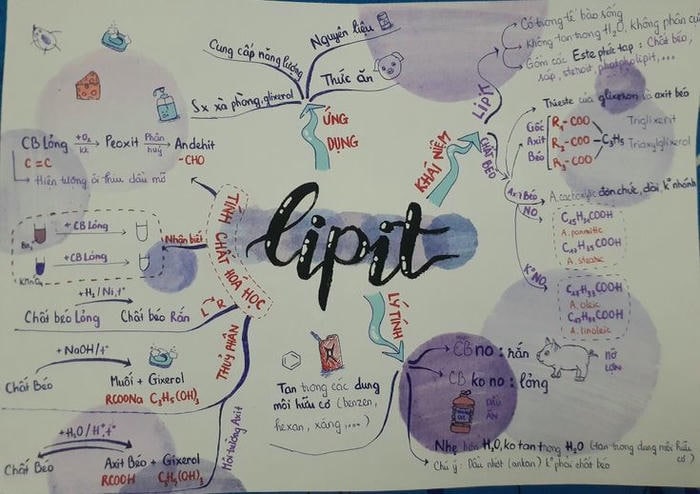 lipit
KHÁI NIỆM
LIPIT
Có trong tế bào sống
Không tan trong H₂O, không phân cực
Gồm các Este phức tạp: Chất béo,
sáp, steroit, photpholipit,...
CHẤT BÉO
Trieste của glixeron và axit béo
Gốc
Axit
Béo
R₁-COO
R₂-COO
R₃-COO
C₃H₅
Triglixerit
Triaxylglixerol
Axit Béo
A.cacboxylic đơn chức, dài, k° nhánh
NO
C₁₅H₃₁COOH
A. panmitic
C₁₇H₃₅COOH
A. stearic
K°NO
C₁₇H₃₃COOH
A. oleic
C₁₇H₃₁COOH
A. linoleic
LÝ TÍNH
CB no: rắn
MỠ
LỢN
CB ko no: lỏng
DẦU
ĂN
Nhẹ hơn H₂O, ko tan trong H₂O (tan trong dung môi hữu
cơ)
Chú ý: Dầu nhớt (ankan) k° phải chất béo
Tan trong các dung
môi hữu cơ (benzen,
hexan, xăng,....)
ỨNG
DỤNG
Cung cấp năng lượng
Nguyên liệu
Thức ăn
Sx xà phòng, glixerol
TÍNH CHẤT HOÁ HỌC
CB Lỏng +O₂ kk Peoxit Phân huỷ Andehit
C=C
-CHO
Hiện tượng ôi thiu dầu mỡ
Nhận biết
+ CB Lỏng
Br₂
+ CB Lỏng
KMnO₄
L → R
+H₂/Ni,t°
Chất béo Lỏng Chất béo Rắn
THUỶ PHÂN
+NaOH/t°
Chất Béo Muối + Gixerol
RCOONa C₃H₅(OH)₃
Môi trường Axit
+H₂O/H⁺,t°
Chất Béo Axit Béo + Gixerol
RCOOH C₃H₅(OH)₃